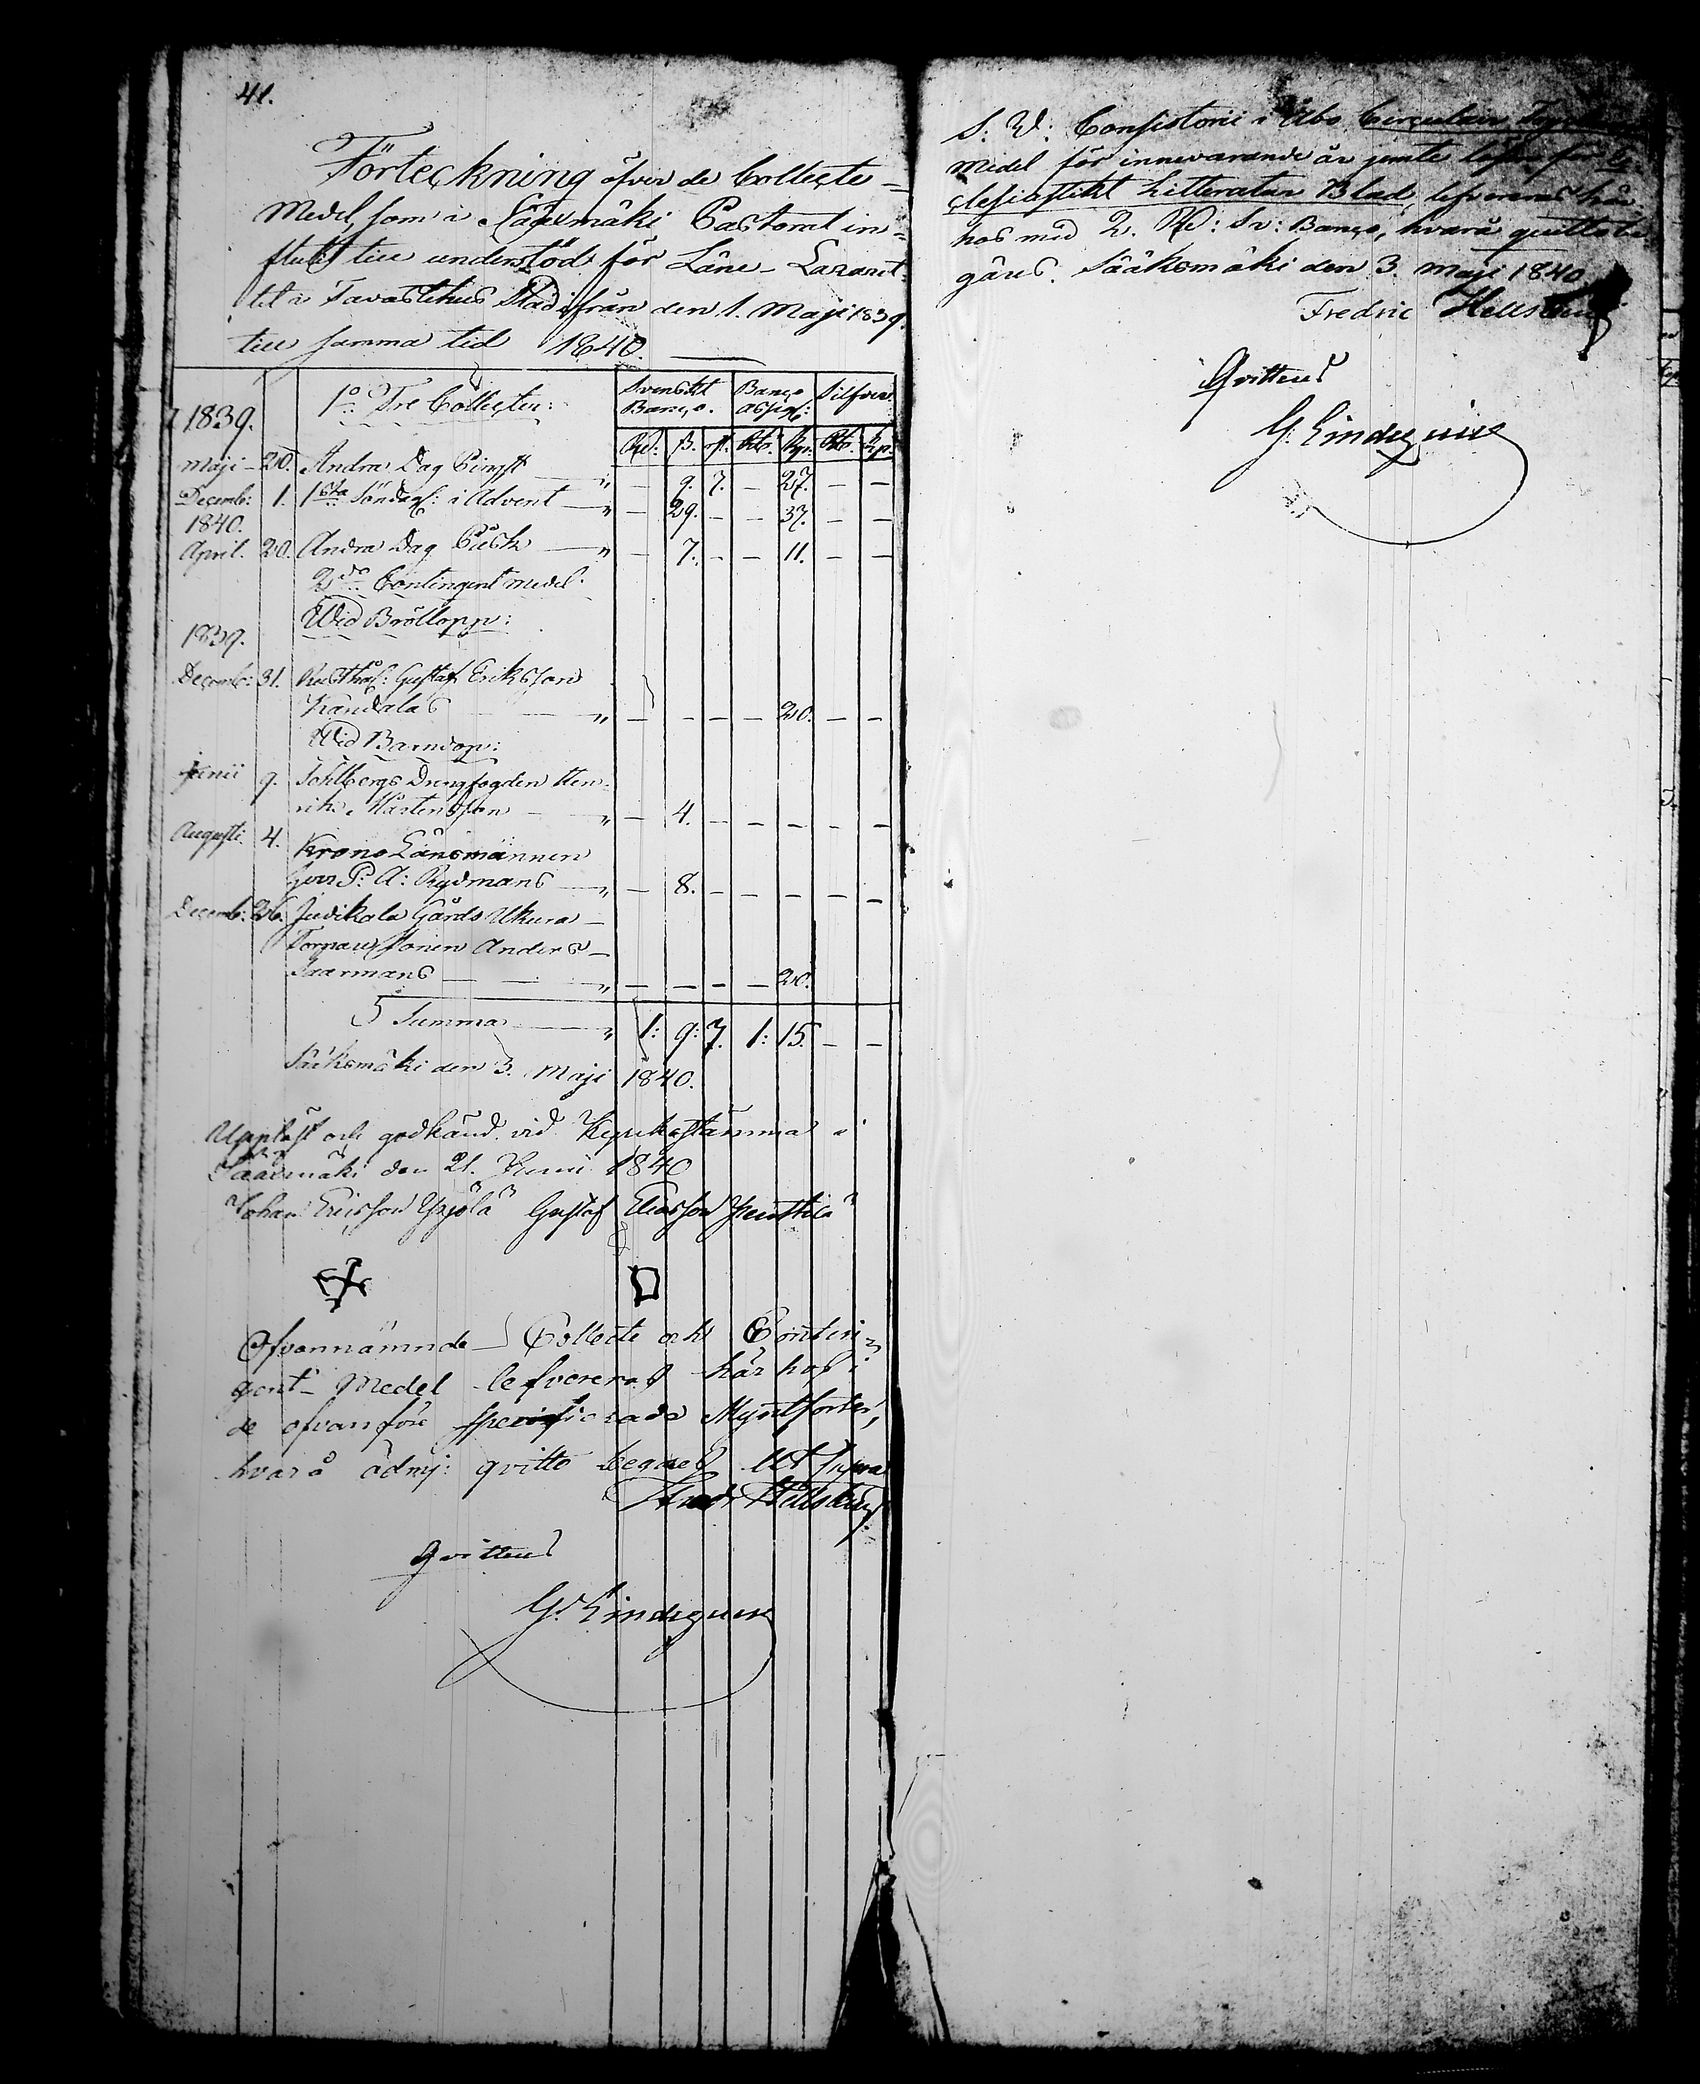 41.
Förteckning öfver de Collecte-
Medel, som i Sääxmäki Pastorat in-
flutit till understöd för Läne-Lazaret-
tet i Tavastehus Stad, från den 1. Maji 1839.
till samma tid 1840.
1839. 1o Tre Collecter: Svenskt Banço. Banço assign: Silfver
Rd: ß. rst. Rbl. Kop. Rbl. Kop.
Maji 20. Andra Dag Pingst — „ — 9. 7. — 27. — —
Decemb: 1. 1sta Söndag: i Advent — „ — 29. — — 37. — —
1840.
April. 20. Andra Dag Påsk — „ — 7. — — 11. — —
2do Contingent medel.
Wid Bröllopp:
1839.
Decemb: 31. Rusthål: Gustaf Eriksson
Kandalas — — „ — — — — 20. — —
Wid Barndop:
Junii 9. Sohlbergs Drengfogden Hen-
rik Mårtensson — „ — 4. — — — — —
Augusti 4. Krono Länsmannen
Herr P: A: Rydmans — „ — 8. — — — — —
Decemb: 26. Judikala Gårds Ukura
Torpare sonen Anders
Saarmans — — „ — — — — 20.
Summa — „ 1: 9: 7. 1: 15. — —
Sääksmäki den 3. Maji 1840.
Uppläst och godkänd vid Kyrkostämma i
Sääxmäki den 21. Junii 1840
Johan Ericsson Yrjölä Gustaf Eliasson
Ofvannämnde Collecte och Contin-
gent-Medel lefvereras här hos i
de ofvanföre specificerade Myntsorter,
hvarå ödmj: qvitto begäres Ut supra
Fredr Hellsten
Qvitteras
G. Lindeqvist
S: W: Consistorii i Åbo Circulair Tryck
Medel för innevarande år jemte lösen för Ec-
clesiastikt Litteratur Blad, lefvereras här
hos med 2. Rd: Sv: Banço, hvarå quittobe
gäres. Sääksmäki den 3. Maji 1840
Fredric Hellsten
Qvitteras
G. Lindeqvist